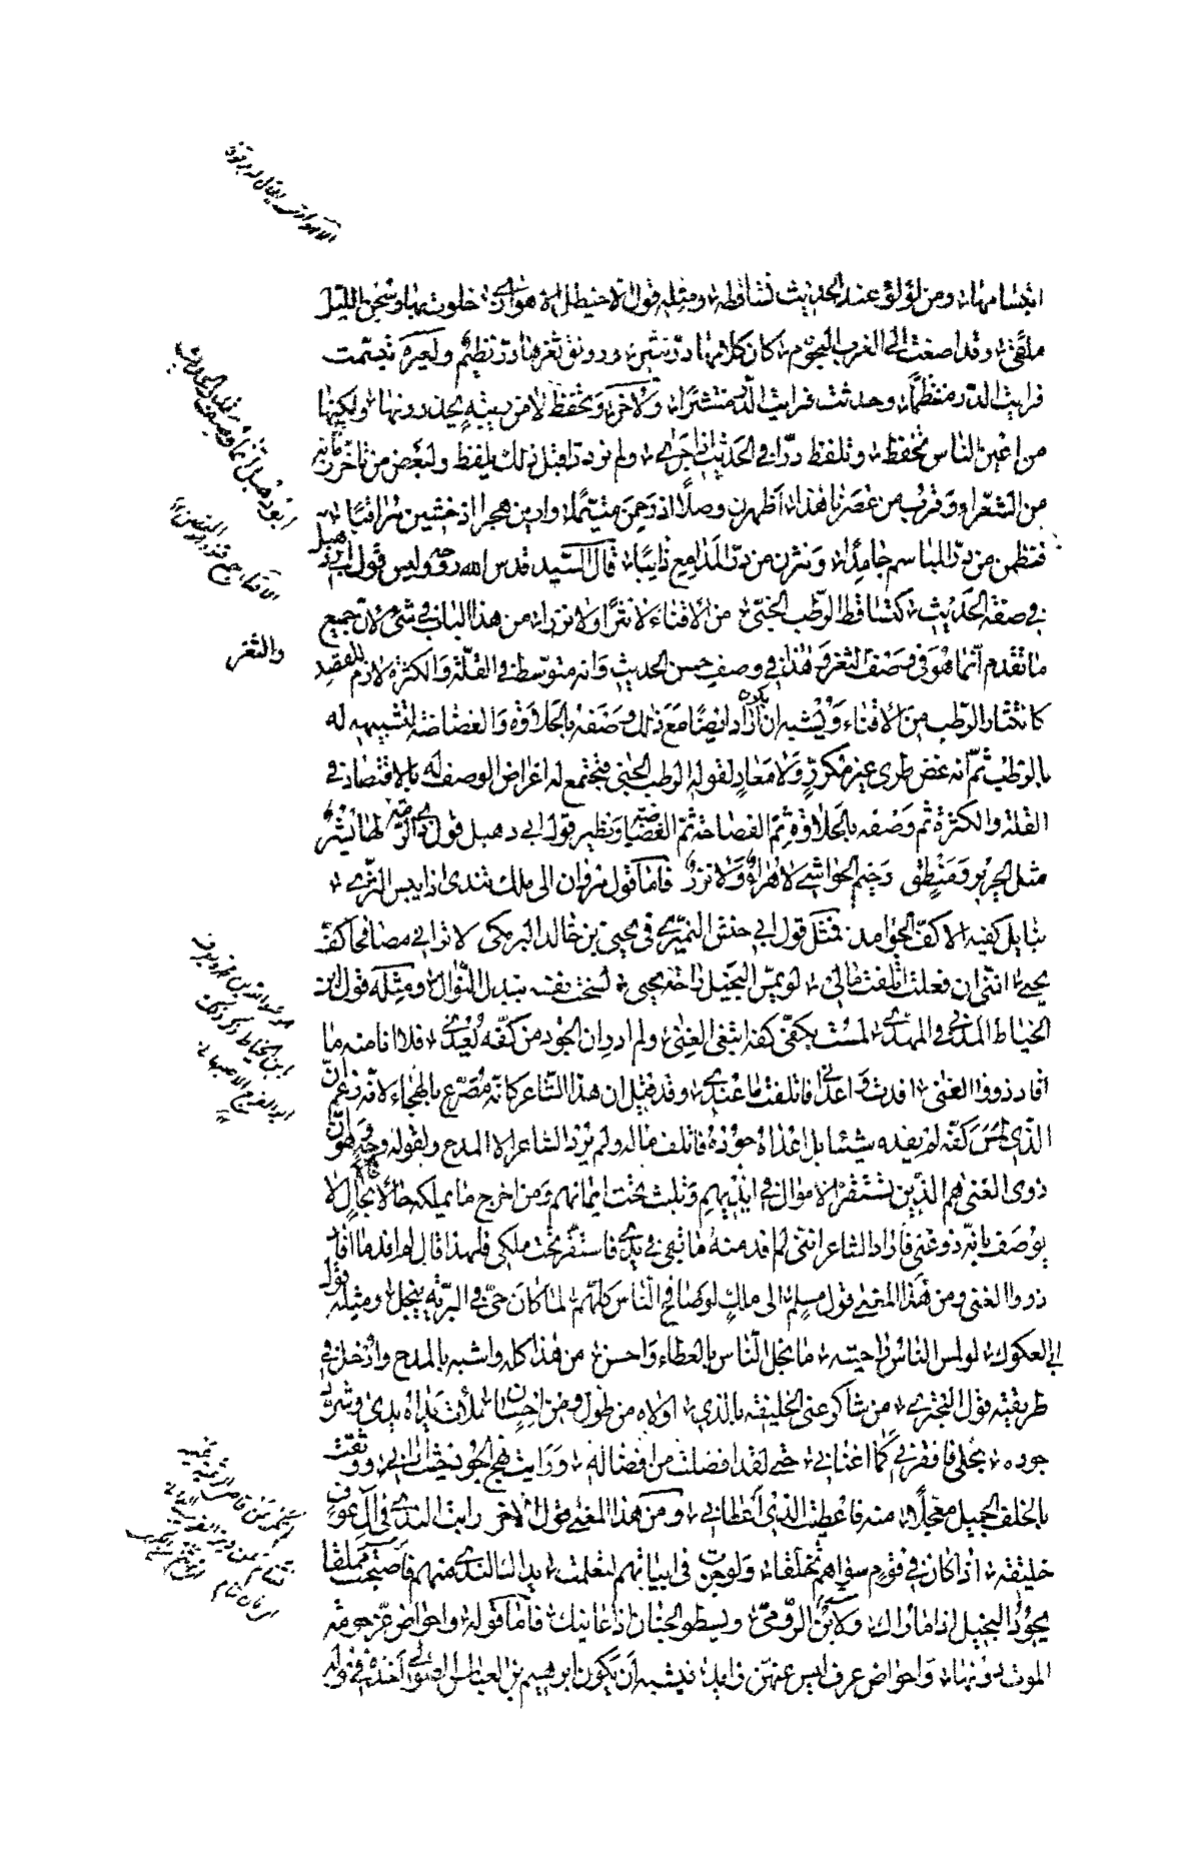 ابتسامها ومن لؤلؤ عند الحديث تساقطه ومثله قول الاخيطل الاهوازي خلوت بها وسجف الليل
ملقى وقد اصغت الى الغرب النجوم كان كلامها در نثير ورونق ثغرها در نظيم ولغيره تبسمت
فرايت الدر منتظما وحدثت فرايت الدر منتثرا ولآخر وتحفظ لا من ريبة يحذرونها ولكنها
من اعين الناس تحفظ وتلفظ درا في الحديث اذا جرى ولم نر درا قبل ذلك يلفظ ولبعض من تاخر زمانه
من الشعراء وقرب من عصرنا هذا اظهرن وصلا اذ رحمن متيما واربن هجرا اذ خشين مراقبا
فنظمن من در المباسم جامدا ونثرن من در المدامع ذايبا قال السيد قدس الله روحه وليس قول ابي دهبل
في صفة الحديث كتساقط الرطب الجني من الاقناء لا نثرا ولا نزرا من هذا الباب في شيء لان جميع
ما تقدم انما هو في وصف الثغر وهذا في وصف حسن الحديث وانه متوسط في القلة والكثرة لازم للقصد
كانتثار الرطب من الاقناء ويشبه ان يكون اراد ايضا مع ذلك وصفه بالحلاوة والغضاضة لتشبيهه له
بالرطب ثم انه غض طري غير مكرر ولا معاد لقوله الرطب الجني فتجتمع له اغراض الوصف له بالاقتصاد في
القلة والكثرة ثم وصفه بالحلاوة ثم الفصاحة ثم الغضاضة ونظير قول ابي دهبل قول ذي الرمة لها بشر
مثل الحرير ومنطق رخيم الحواشي لا هراء ولا نزر فاما قول مروان الى ملك تندى اذا يبس الثرى
بنايل كفيه الاكف الجوامد فمثل قول ابي حنش النميري في يحيى بن خالد البرمكي لا تراني مصافحا كف
يحيى انني ان فعلت اتلفت مالي لو يمس البخيل راحة يحيى لسخت نفسه ببذل النوال ومثله قول ابن
الخياط المدني في المهدي لمست بكفي كفه ابتغي الغنى ولم ادر ان الجود من كفه يعدي فلا انا منه ما
افاد ذوو الغنى افدت واعداني فاتلفت ما عندي وقد قيل ان هذا الشاعر كانه مصرح بالهجاء لانه زعم ان
الذي لمس كفه لم يفده شيئا بل اعداه جوده فاتلف ماله ولم يرد الشاعر الا المدح ولقوله وجه وهو ان
ذوي الغنى هم الذين تستقر الاموال في ايديهم وتلبث تحت ايمانهم ومن اخرج ما يملكه حالا بحال لا
يوصف بانه ذو غنى فاراد الشاعر انني لم افد منه ما نبقي في يدي فاستقر تحت ملكي فلهذا قال لم افد ما افاد
ذوو الغنى ومن هذا المعنى قول مسلم الى ملك لو صافح الناس كلهم لما كان حي في البرية يبخل ومثله قول
ابي العكوك لو لمس الناس راحتيه ما بخل الناس بالعطاء واحسن من هذا كله واشبه بالمدح وادخل في
طريقته قول البحتري من شاكر عني الخليفة بالذي اولاه من طول ومن احسان ملأت يداه يدي وشرد
جوده بخلي فافقرني كما اغناني حتى لقد افضلت من افضاله ورايت نهج الجود حيث اراني ووثقت
بالخلف الجميل معجلا منه فاعطيت الذي اعطاني ومن هذا المعنى قول الآخر رايت الندى في آل عوف
خليقة اذا كان في قوم سواهم تخلقا ولو جزت في ابياتهم لتعلمت يداك الندى منهم فاصبحت مملقا
يجود البخيل اذا ما رآك ولابن الرومي ويسطو الجبان اذا عاينك فاما قوله واحواض عز حومة
الموت دونها واحواض عرف ليس عنهن ذايد فيشبه ان يكون ابراهيم بن العباس الصولي اخذه في قوله
والثغر